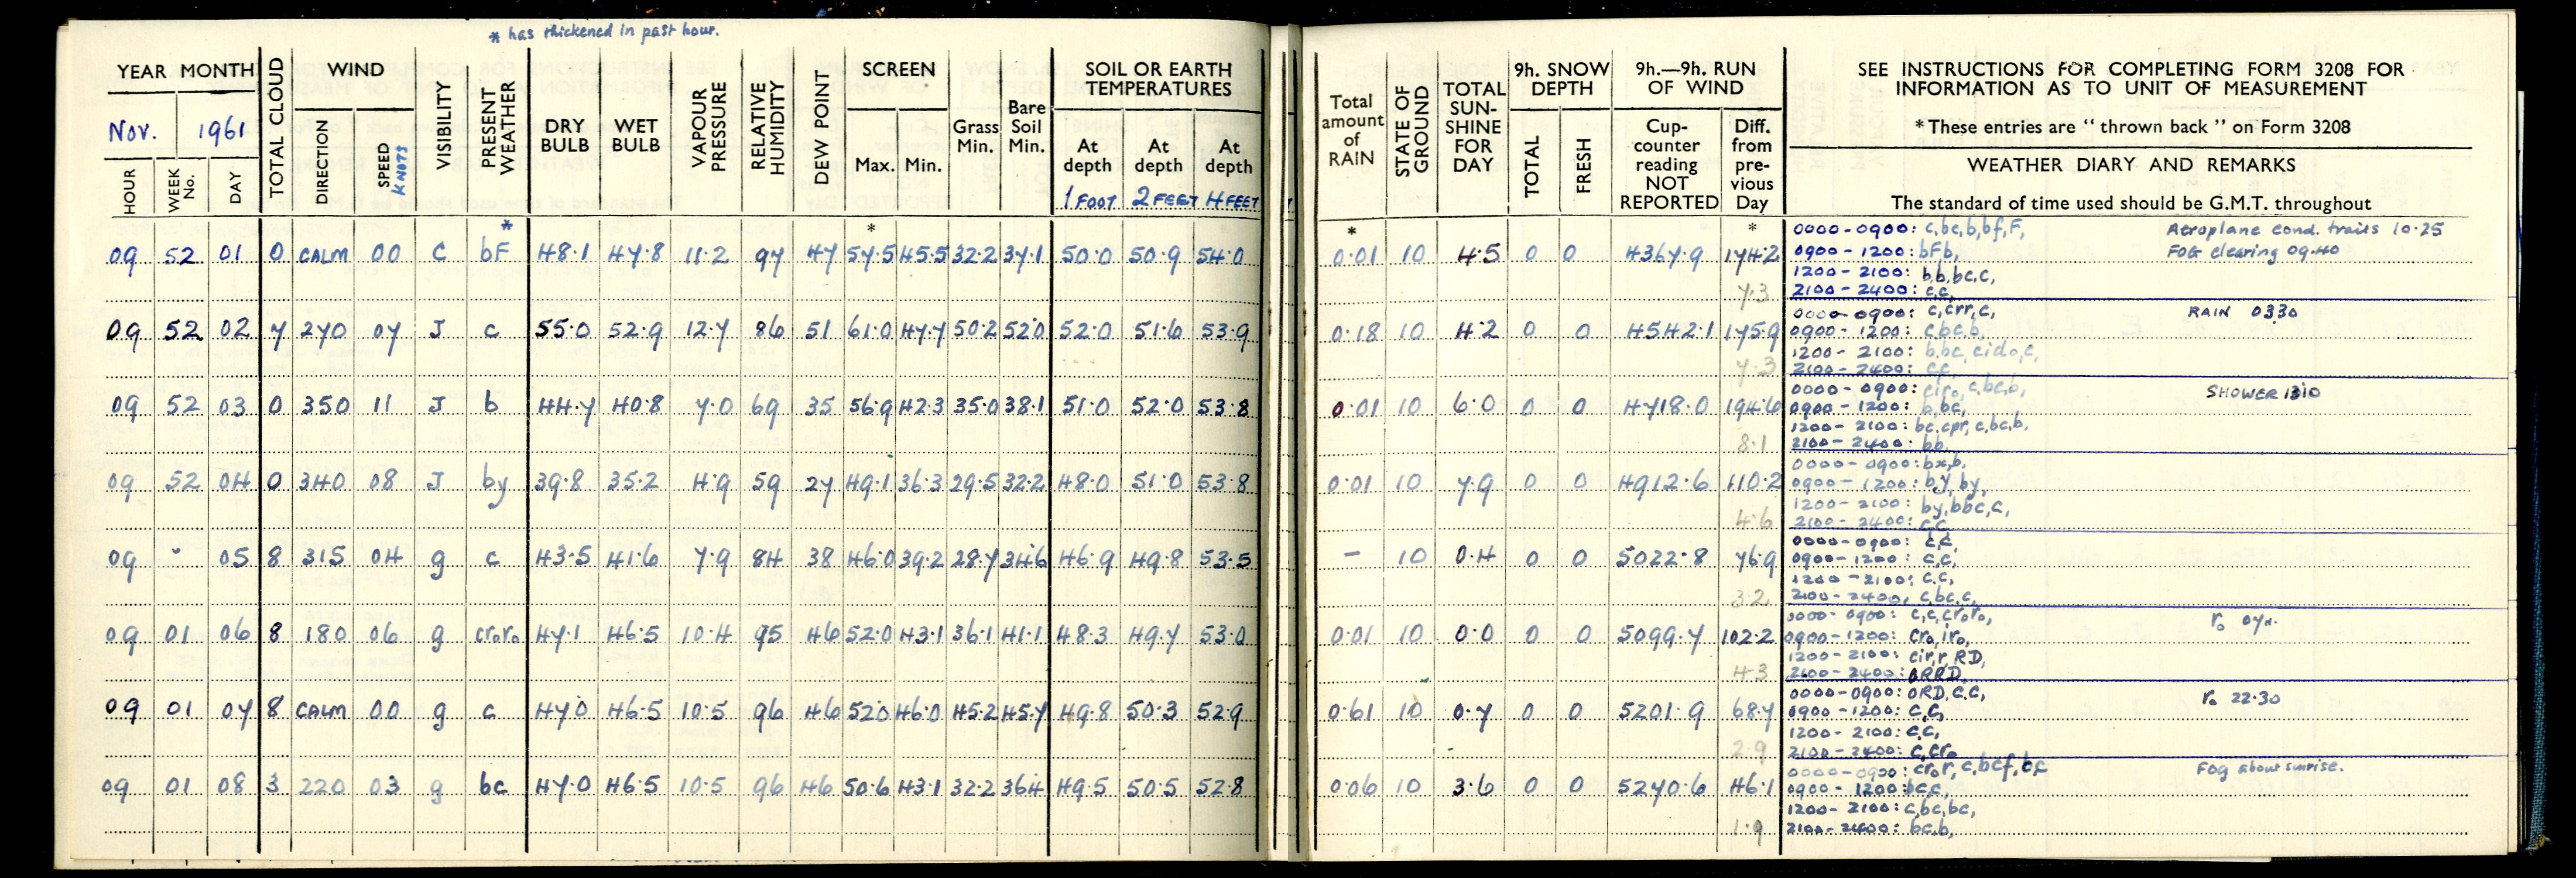 * has thickened in past hour.
YEAR MONTH
Nov. 1961
HOUR WEEK No. DAY TOTAL CLOUD WIND DIRECTION SPEED KNOTS VISIBILITY PRESENT WEATHER DRY BULB WET BULB VAPOUR PRESSURE RELATIVE HUMIDITY DEW POINT SCREEN Max. Min. Grass Min. Bare Soil Min. SOIL OR EARTH TEMPERATURES At depth 1 FOOT At depth 2 FEET At depth 4 FEET
Total amount of RAIN STATE OF GROUND TOTAL SUN-SHINE FOR DAY 9h. SNOW DEPTH TOTAL FRESH 9h.—9h. RUN OF WIND Cup-counter reading NOT REPORTED Diff. from pre-vious Day
SEE INSTRUCTIONS FOR COMPLETING FORM 3208 FOR
INFORMATION AS TO UNIT OF MEASUREMENT
* These entries are “ thrown back ” on Form 3208
WEATHER DIARY AND REMARKS
The standard of time used should be G.M.T. throughout
* * * *
09 52 01 0 CALM 00 C bF 48.1 47.8 11.2 97 47 57.5 45.5 32.2 37.1 50.0 50.9 54.0 0.01 10 4.5 0 0 4367.9 174.2
7.3
0000-0900: c,bc,b,bf,F, Aeroplane cond. trails 10.25
0900-1200: bFb, FOG clearing 09.40
1200-2100: b,b,bc,c,
2100-2400: c,c,
09 52 02 7 270 07 J c 55.0 52.9 12.7 86 51 61.0 47.7 50.2 52.0 52.0 51.6 53.9 0.18 10 4.2 0 0 4542.1 175.9
7.3
0000-0900: c,crr,c, RAIN 0330
0900-1200: c,bc,b,
1200-2100: b,bc,cido,c,
2100-2400: cc
09 52 03 0 350 11 J b 44.7 40.8 7.0 69 35 56.9 42.3 35.0 38.1 51.0 52.0 53.8 0.01 10 6.0 0 0 4718.0 194.6
8.1
0000-0900: ciro,c,bc,b, SHOWER 1310
0900-1200: b,bc,
1200-2100: bc,cpr,c,bc,b,
2100-2400: bb
09 52 04 0 340 08 J by 39.8 35.2 4.9 59 27 49.1 36.3 29.5 32.2 48.0 51.0 53.8 0.01 10 7.9 0 0 4912.6 110.2
4.6
0000-0900: bx,b,
0900-1200: by,by,
1200-2100: by,bbc,c,
2100-2400: c,c
09 " 05 8 315 04 g c 43.5 41.6 7.9 84 38 46.0 39.2 28.7 34.6 46.9 49.8 53.5 – 10 0.4 0 0 5022.8 76.9
3.2
0000-0900: c,c,
0900-1200: c,c,
1200-2100: c,c,
2100-2400, c,bc,c,
09 01 06 8 180 06 g croro 47.1 46.5 10.4 95 46 52.0 43.1 36.1 41.1 48.3 49.7 53.0 0.01 10 0.0 0 0 5099.7 102.2
4.3
0000-0900: c,c,croro,
0900-1200: cro,iro,
1200-2100: cir,r RD,
2100-2400: ORRD,
09 01 07 8 CALM 00 g c 47.0 46.5 10.5 96 46 52.0 46.0 45.2 45.7 49.8 50.3 52.9 0.61 10 0.7 0 0 5201.9 68.7
2.9
0000-0900: ORD,c,c, ro 22.30
0900-1200: c,c,
1200-2100: c,c,
2100-2400: c,cro
09 01 08 3 220 03 g bc 47.0 46.5 10.5 96 46 50.6 43.1 32.2 36.4 49.5 50.5 52.8 0.06 10 3.6 0 0 5270.6 46.1
1.9
0000-0900: cror,c,bcf,bc Fog about sunrise.
0900-1200: bc,c,
1200-2100: c,bc,bc,
2100-2400: bc,b,